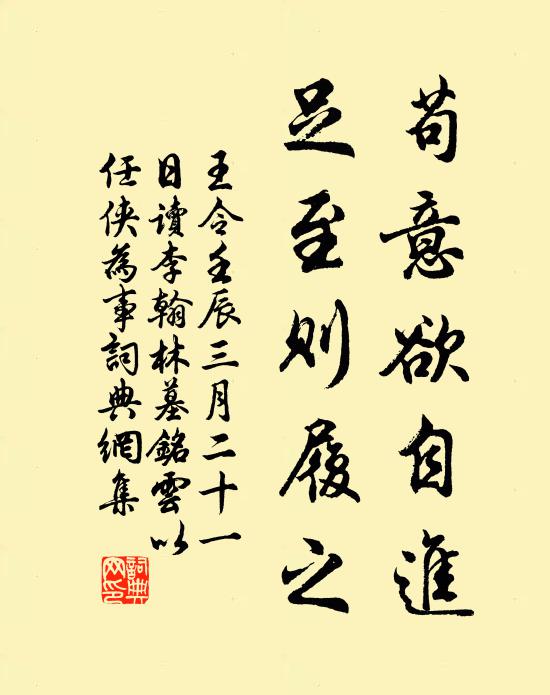 苟意欲自進
足至則履之
王令壬辰三月二十一
日讀李翰林墓銘雲以
任俠為事詞典網集
詞典
网印